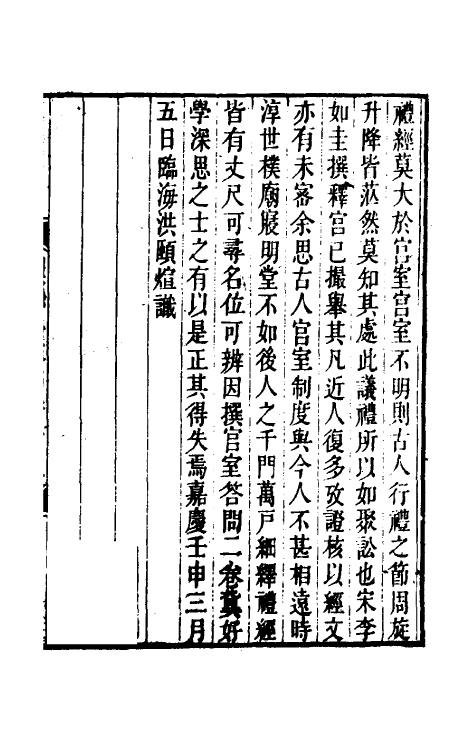 禮經莫大於宮室宮室不明則古人行禮之節周旋
升降皆茫然莫知其處此議禮所以如聚訟也宋李
如圭撰釋宮已撮舉其凡近人復多攷證核以經文
亦有未審余思古人宮室制度與今人不甚相遠時
淳世樸廟寢明堂不如後人之千門萬戶細釋禮經
皆有丈尺可尋名位可辨因撰宮室答問二卷冀好
學深思之士之有以是正其得失焉嘉慶壬申三月
五日臨海洪頤煊識